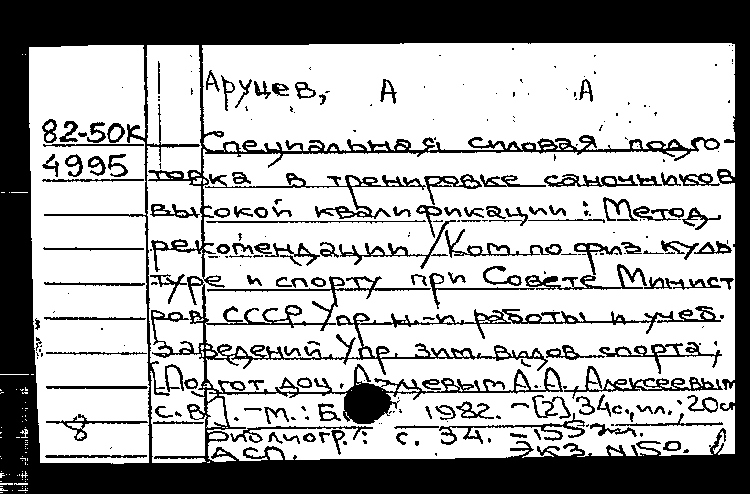 Аруцев, А А
82-50К Специальная силовая подго-
4995 товка в тренировке саночников
высокой квалификации: Метод
рекомендации / Ком. по физ. куль
туре и спорту при Совете Минист
ров СССР. Упр. н.-и. работы и учеб.
заведений. Упр. зим. видов спорта;
[Подгот. доц. Аруцевым А.А., Алексеевым
С.В]. - М.: Б. 1982. - [2], 34с., ил.; 20см
8 Библиогр.: с. 34. - 155
АСП. Экз. N150.